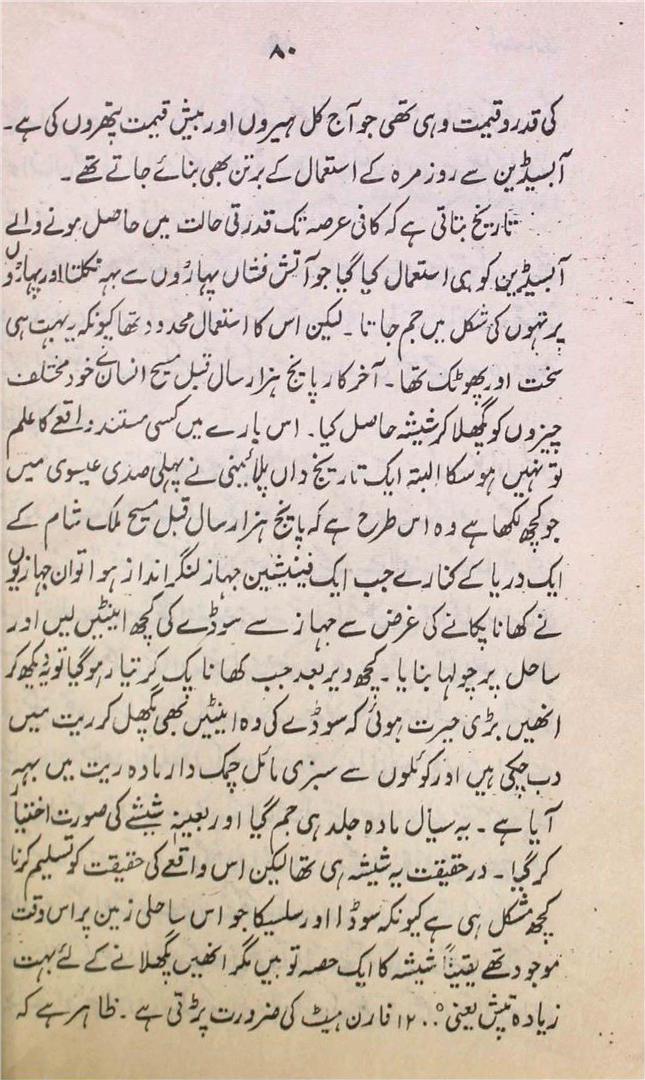 ۸۰
کی قدر و قیمت وہی تھی جو آج کل ہیروں اور بیش قیمت پتھروں کی ہے۔
آبسیڈین سے روزمرہ کے استعمال کے برتن بھی بنائے جاتے تھے۔
تاریخ بتاتی ہے کہ کافی عرصہ تک قدرتی حالت میں حاصل ہونے والے
آبسیڈین کو ہی استعمال کیا گیا جو آتش فشاں پہاڑوں سے بہہ نکلتا اور پہاڑوں
پر تہوں کی شکل میں جم جاتا۔ لیکن اس کا استعمال محدود تھا کیونکہ یہ بہت ہی
سخت اور پھوٹک تھا۔ آخر کار پانچ ہزار سال قبل مسیح انسان نے خود مختلف
چیزوں کو پگھلا کر شیشہ حاصل کیا۔ اس بارے میں کسی مستند واقعے کا علم
تو نہیں ہو سکا البتہ ایک تاریخ داں پلائینی نے پہلی صدی عیسوی میں
جو کچھ لکھا ہے وہ اس طرح ہے کہ پانچ ہزار سال قبل مسیح ملک شام کے
ایک دریا کے کنارے جب ایک فینیشین جہاز لنگر انداز ہوا تو ان جہازیوں
نے کھانا پکانے کی غرض سے جہاز سے سوڈے کی کچھ اینٹیں لیں اور
ساحل پر چولہا بنایا۔ کچھ دیر بعد جب کھانا پک کر تیار ہو گیا تو یہ دیکھ کر
انھیں بڑی حیرت ہوئی کہ سوڈے کی وہ اینٹیں بھی پگھل کر ریت میں
دب چکی ہیں اور کوئلوں سے سبزی مائل چمک دار مادہ ریت میں بہہ
آیا ہے۔ یہ سیال مادہ جلد ہی جم گیا اور بعینہٖ شیشے کی صورت اختیار
کر گیا۔ در حقیقت یہ شیشہ ہی تھا لیکن اس واقعے کی حقیقت کو تسلیم کرنا
کچھ مشکل ہی ہے کیونکہ سوڈا اور سلیکا جو اس ساحلی زمین پر اس وقت
موجود تھے یقیناً شیشہ کا ایک حصہ تو ہیں مگر انھیں پگھلانے کے لئے بہت
زیادہ تپش یعنی ۱۲۰۰° فارن ہیٹ کی ضرورت پڑتی ہے۔ ظاہر ہے کہ